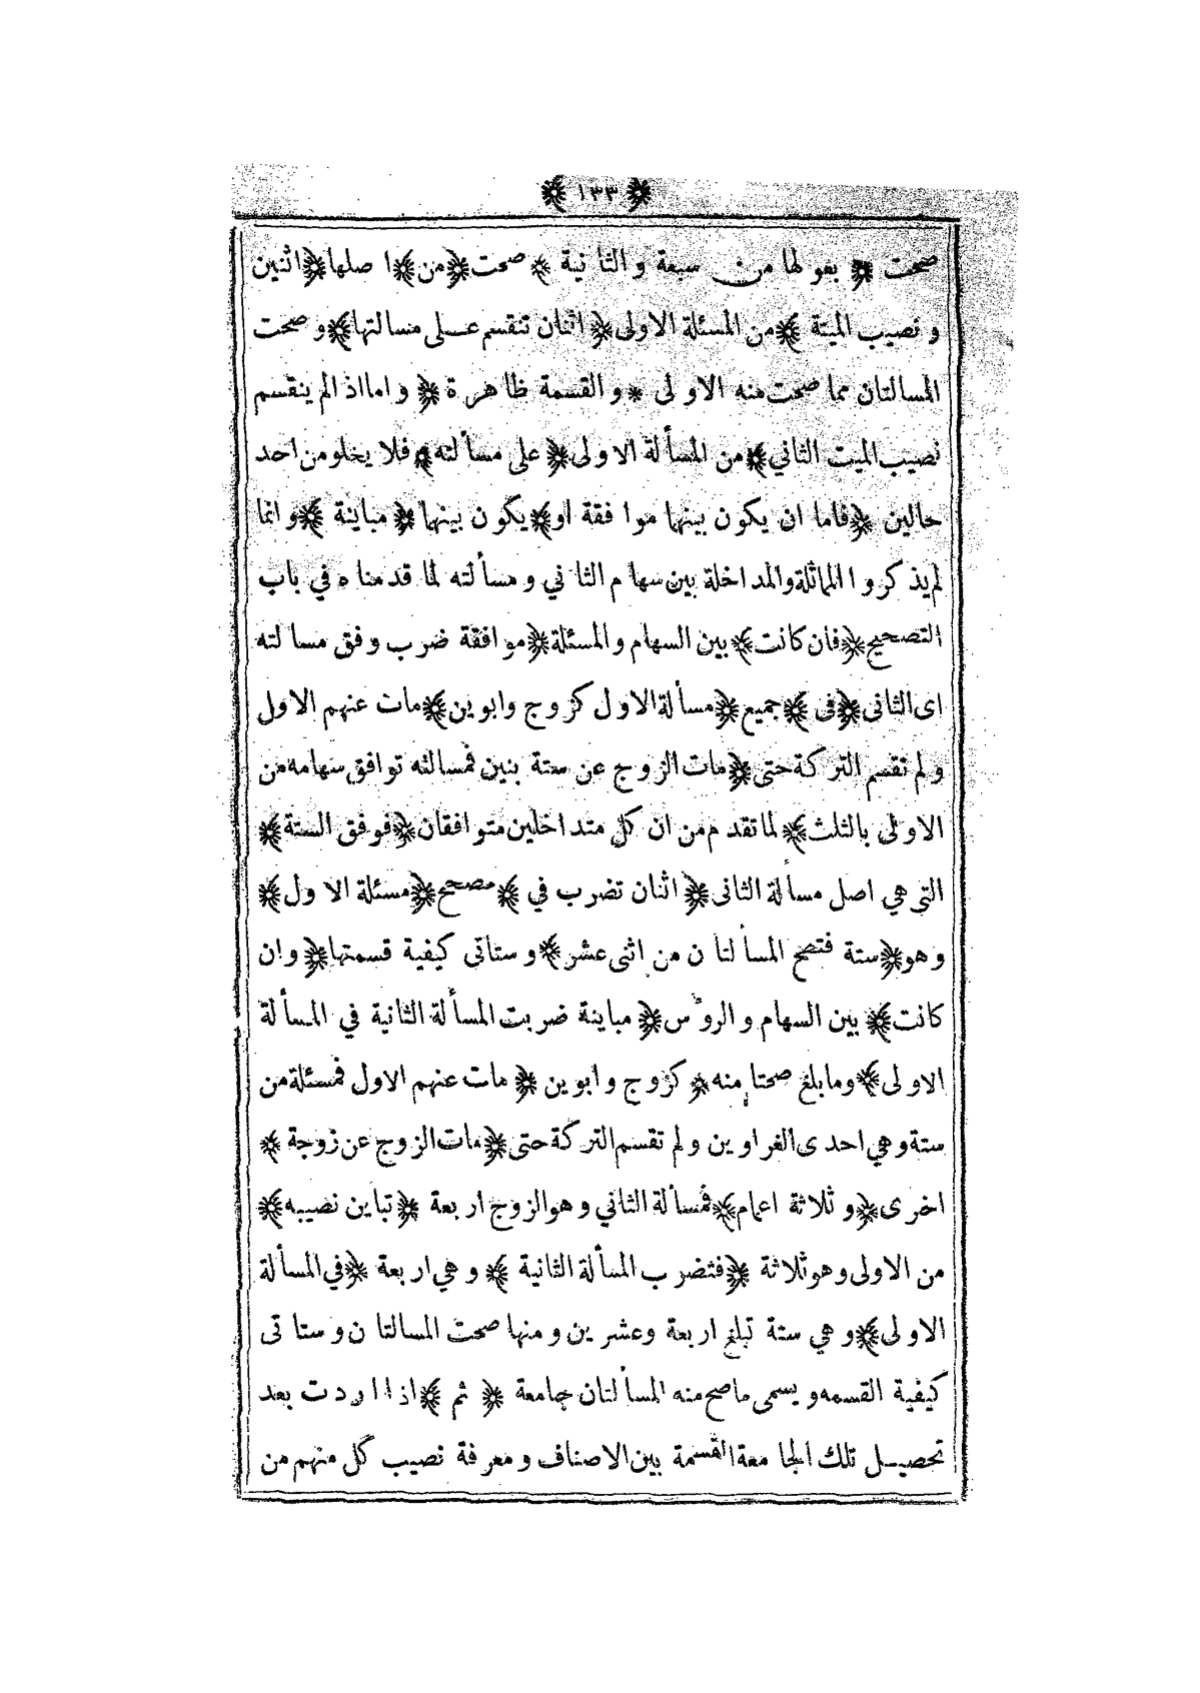 ﴿ ١٣٣ ﴾
صحت ﴿ بعولها من سبعة والثانية ﴾ صحت ﴿ من ﴾ اصلها ﴿ اثنين
ونصيب الميتة ﴾ من المسئلة الاولى ﴿ اثنان تنقسم على مسالتها ﴾ وصحت
المسالتان مما صحت منه الاولى * والقسمة ظاهرة ﴿ واما اذا لم ينقسم
نصيب الميت الثاني ﴾ من المسألة الاولى ﴿ على مسألته ﴾ فلا يخلو من احد
حالين ﴿ فاما ان يكون بينهما موافقة او ﴾ يكون بينهما ﴿ مباينة ﴾ وانما
لم يذكروا المماثلة والمداخلة بين سهام الثاني ومسألته لما قدمناه في باب
التصحيح ﴿ فان كانت ﴾ بين السهام والمسئلة ﴿ موافقة ضرب وفق مسالته
اى الثانى ﴿ فى ﴾ جميع ﴿ مسألة الاول كزوج وابوين ﴾ مات عنهم الاول
ولم تقسم التركة حتى ﴿ مات الزوج عن ستة بنين فمسالته توافق سهامه من
الاولى بالثلث ﴾ لما تقدم من ان كل متداخلين متوافقان ﴿ فوفق الستة ﴾
التى هي اصل مسألة الثانى ﴿ اثنان تضرب في ﴾ مصحح ﴿ مسئلة الاول ﴾
وهو ﴿ ستة فتصح المسألتان من اثنى عشر ﴾ وستاتى كيفية قسمتها ﴿ وان
كانت ﴾ بين السهام والرؤس ﴿ مباينة ضربت المسألة الثانية في المسألة
الاولى ﴾ وما بلغ صحتا منه ﴿ كزوج وابوين ﴾ مات عنهم الاول فمسئلة من
ستة وهي احدى الغراوين ولم تقسم التركة حتى ﴿ مات الزوج عن زوجة ﴾
اخرى ﴿ وثلاثة اعمام ﴾ فمسألة الثاني وهو الزوج اربعة ﴿ تباين نصيبه ﴾
من الاولى وهو ثلاثة ﴿ فتضرب المسألة الثانية ﴾ وهي اربعة ﴿ في المسألة
الاولى ﴾ وهي ستة تبلغ اربعة وعشرين ومنها صحت المسالتان وستاتى
كيفية القسمه ويسمى ما صح منه المسألتان جامعة ﴿ ثم ﴾ اذا اردت بعد
تحصيل تلك الجامعة القسمة بين الاصناف ومعرفة نصيب كل منهم من